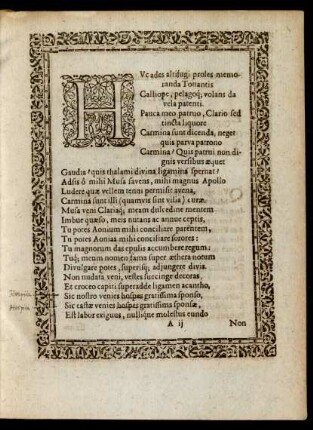 HVc ades altisug; proles memo-
randa Tonantis
Calliope, pelagoq; volans da
vela patenti.
Pauca meo patruo, Clario sed
tincta liquore
Carmina sunt dicenda, neget
quis parva patrono
Carmina? Quis patrui non di-
gnis versibus æquet
Gaudia? quis thalami divina ligamina spernat?
Adsis ô mihi Musa favens, mihi magnus Apollo
Ludere quæ vellem tenui permisit avena,
Carmina sunt illi (quamvis sint vilia) curæ.
Musa veni Clariaq; meam dulcedine mentem
Imbue quæso, meis nutans ac annue cæptis,
Tu potes Aonium mihi conciliare parentem,
Tu potes Aonias mihi conciliare sorores:
Tu magnorum das epulis accumbere regum:
Tuq; meum nomen fama super æthera notum
Divulgare potes, superisq; adjungere divis.
Non nudata veni, vestes succinge decoras,
Et croceo capiti superadde ligamen acantho,
Sic nostro venies hospes gratissima sponso,
Sic castæ venies hospes gratissima sponsæ,
Est labor exiguus, nullique molestus eundo
A ij Non